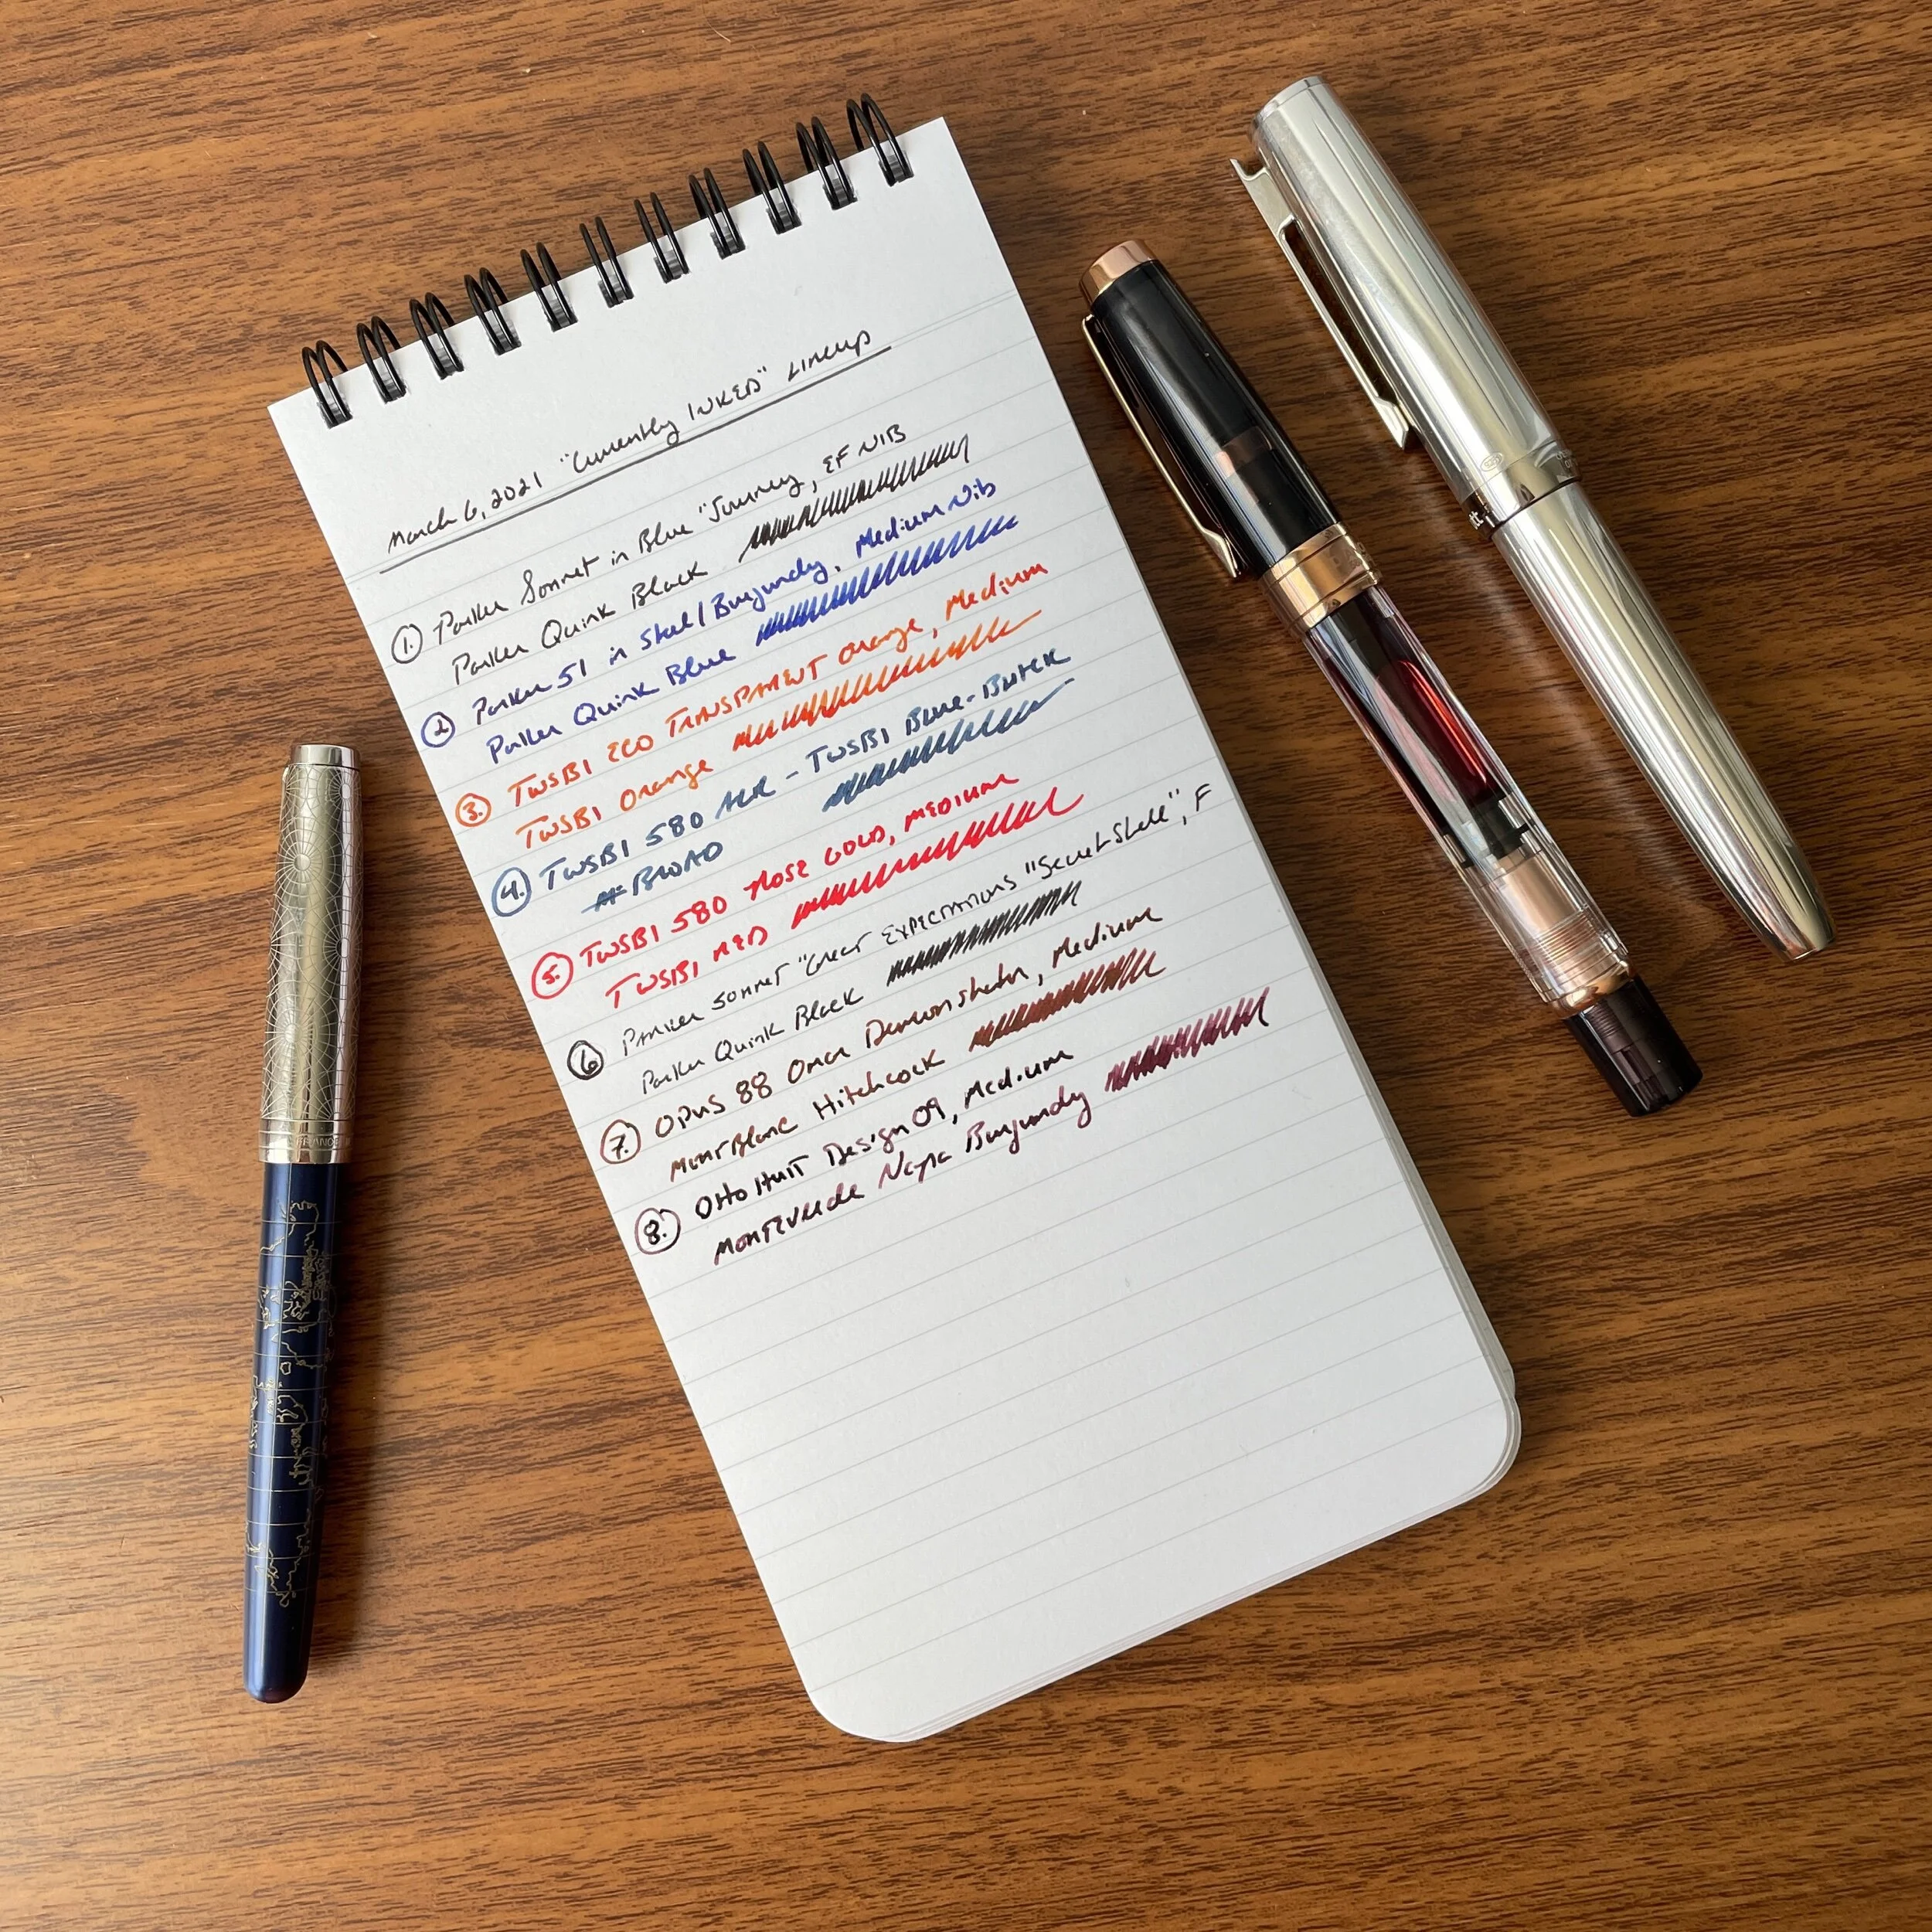 March 6, 2021 "Currently INKED" Lineup
1. Parker Sonnet in Blue "Journey, EF NIB
Parker Quink Black
2. Parker 51 in Steel/Burgundy, Medium Nib
Parker Quink Blue
3. TWSBI ECO TRANSPARENT Orange, Medium
TWSBI Orange
4. TWSBI 580 ALR - TWSBI Blue-Black
BROAD
5. TWSBI 580 ROSE GOLD, MEDIUM
TWSBI RED
6 PARKER SONNET "Great EXPECTATIONS "Secret Shell", F
Parker Quink Black
7. OPUS 88 Omar Demonstrator, Medium
MontBlanc Hitchcock
8. Otto Hutt Design 09, Medium
MONTEVERDE Napa Burgundy
FRANCE